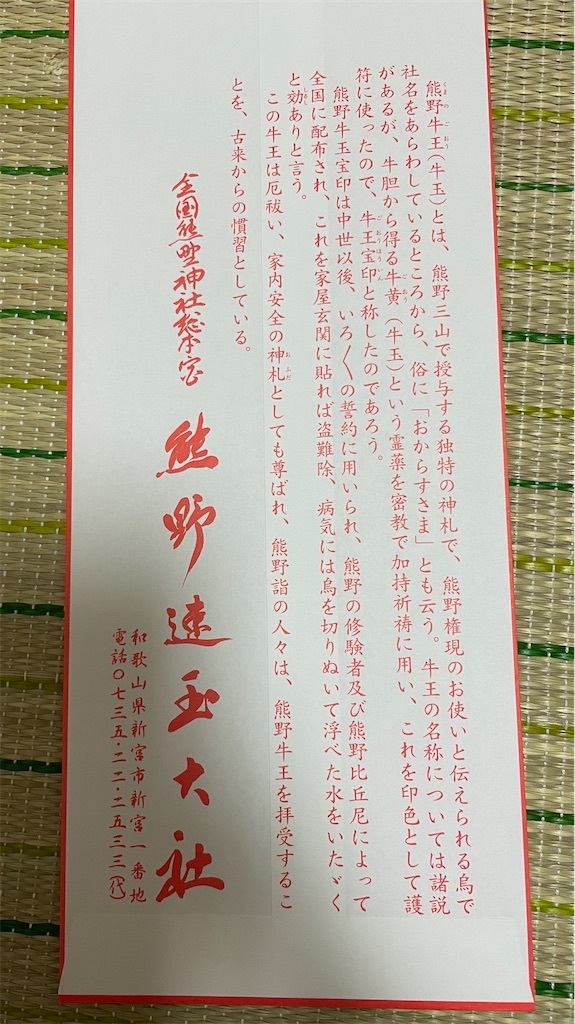 熊野牛王(牛玉)とは、熊野三山で授与する独特の神札で、熊野権現のお使いと伝えられる烏で
社名をあらわしているところから、俗に「おからすさま」とも云う。牛王の名称については諸説
があるが、牛胆から得る牛黄(牛玉)という霊薬を密教で加持祈祷に用い、これを印色として護
符に使ったので、牛王宝印と称したのであろう。
熊野牛玉宝印は中世以後、いろ〳〵の誓約に用いられ、熊野の修験者及び熊野比丘尼によって
全国に配布され、これを家屋玄関に貼れば盗難除、病気には烏を切りぬいて浮べた水をいたゞく
と効ありと言う。
この牛王は厄祓い、家内安全の神札としても尊ばれ、熊野詣の人々は、熊野牛王を拝受するこ
とを、古来からの慣習としている。
全国熊野神社総本宮
熊野速玉大社
和歌山県新宮市新宮一番地
電話〇七三五・二二・二五三三(代)